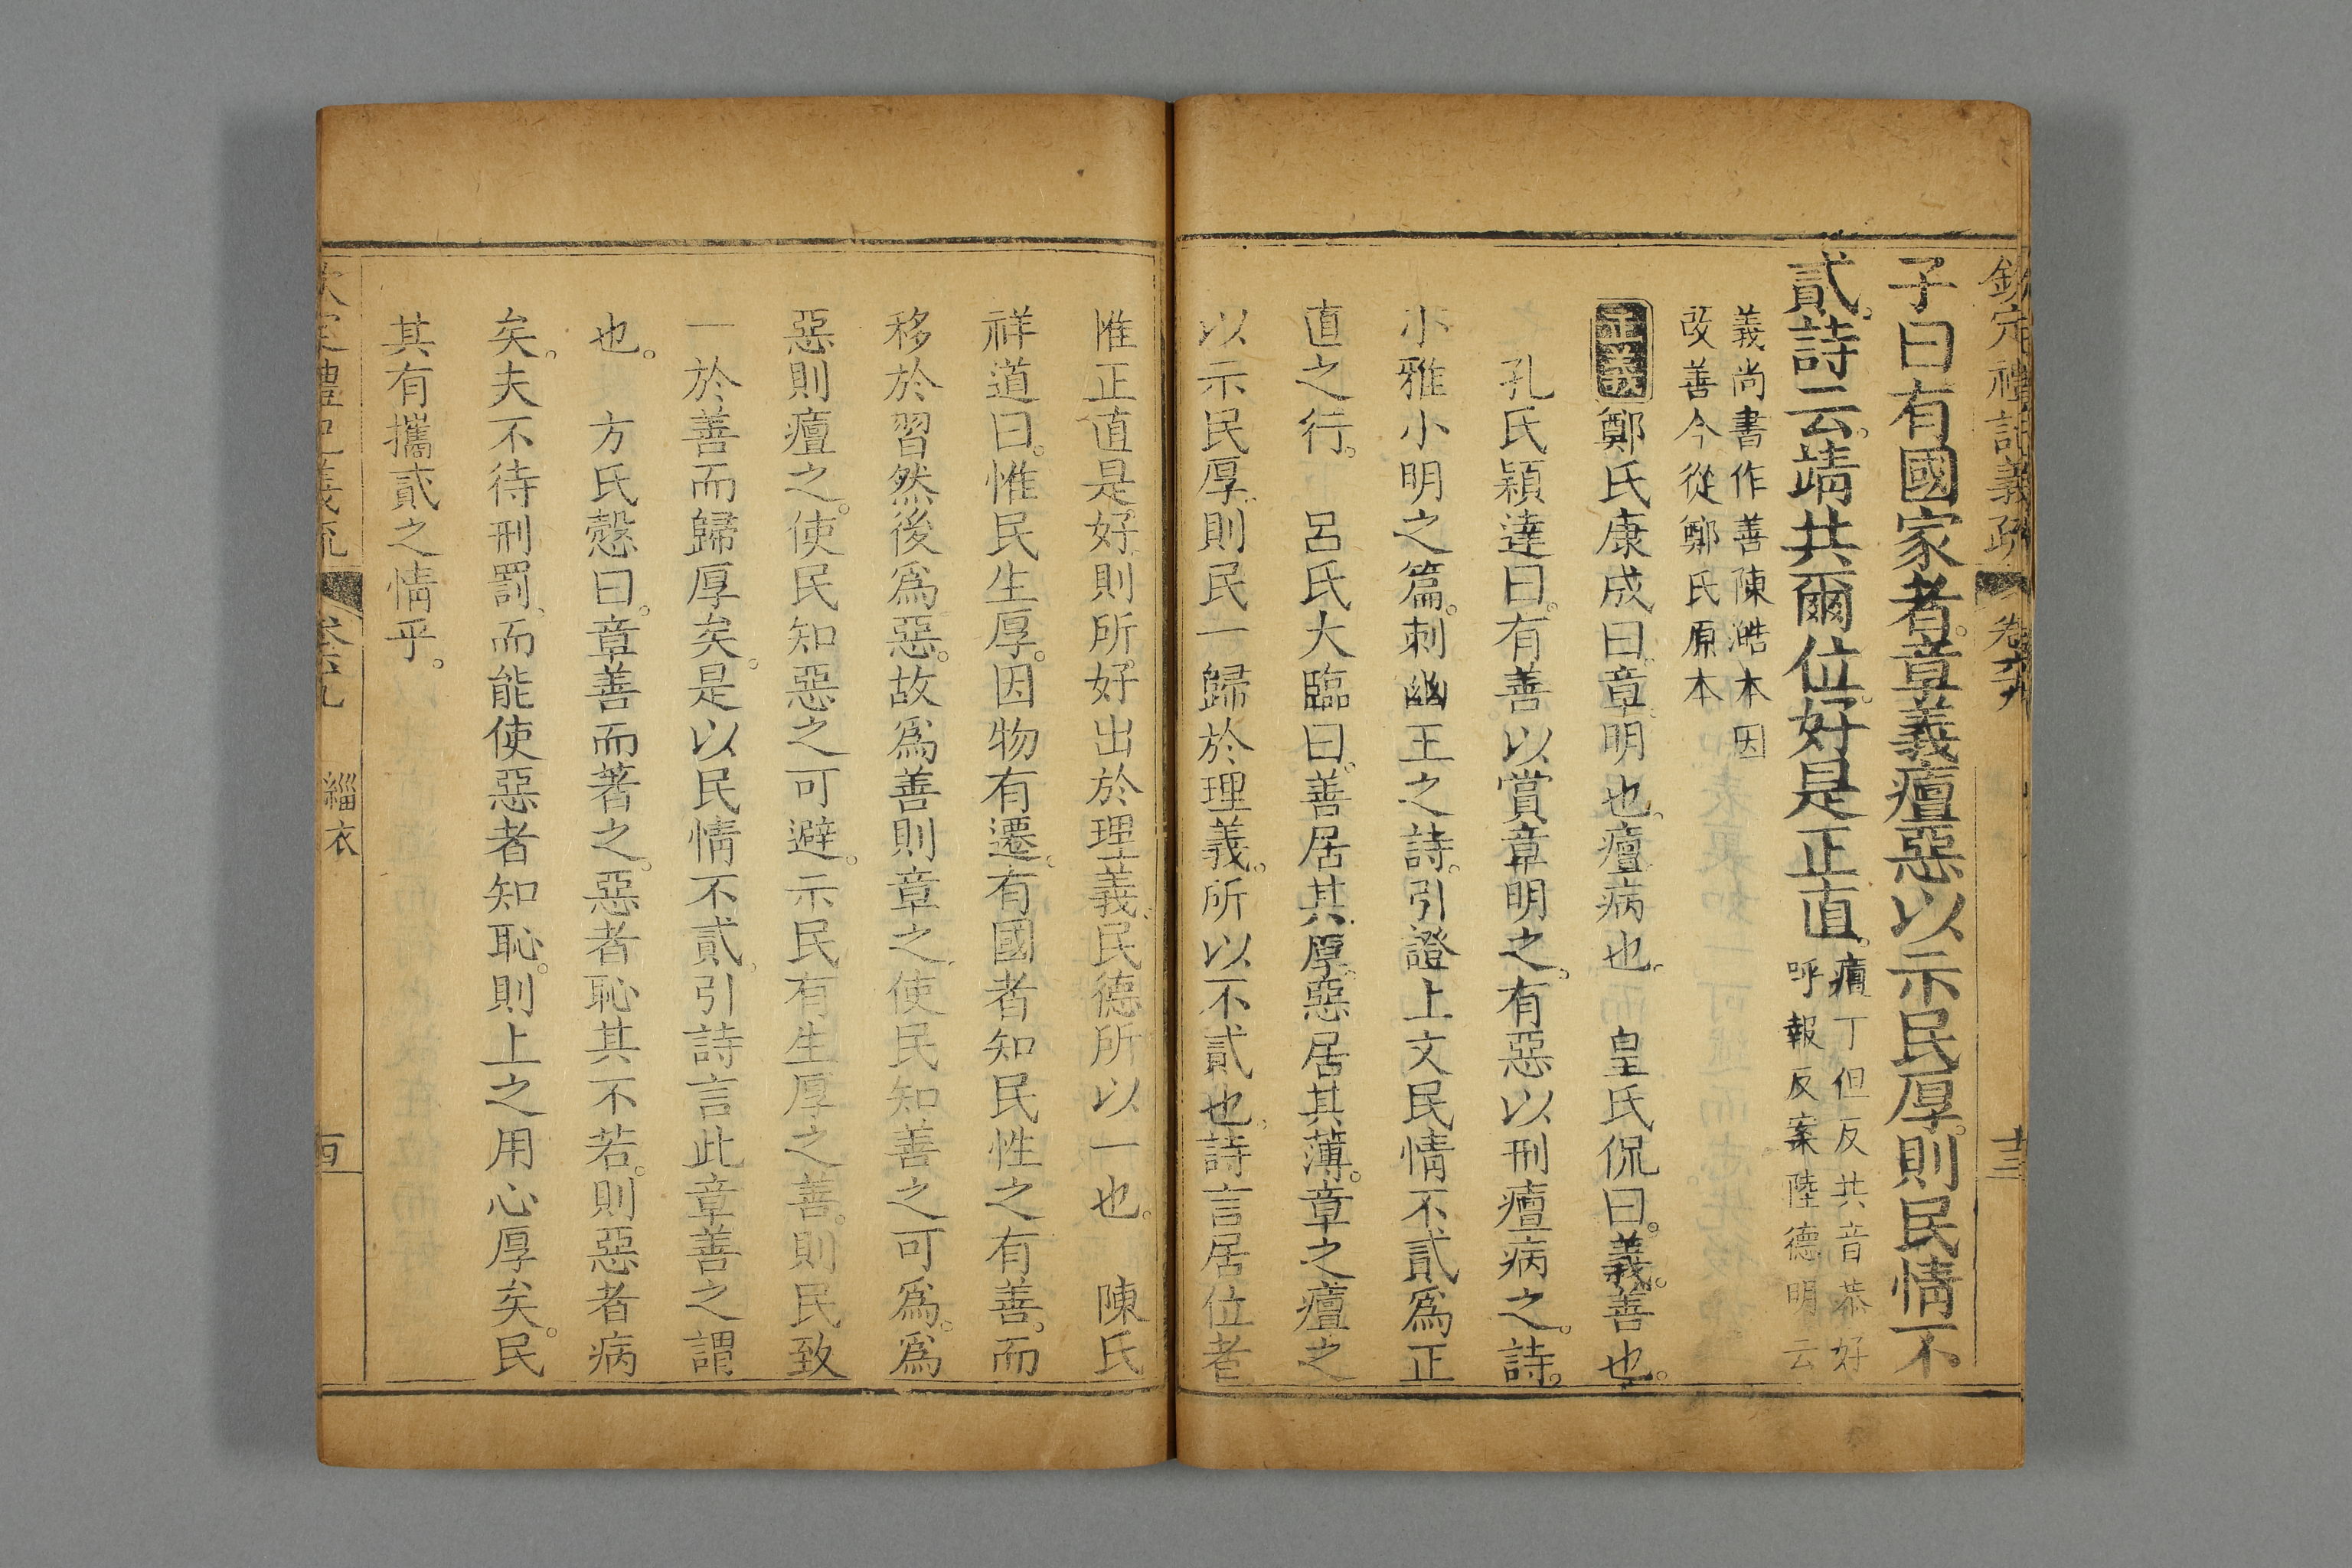 欽定禮記義疏 卷六十九 十三
子曰有國家者。章義癉惡以示民厚。則民情不
貳。詩云。靖共爾位。好是正直。癉丁但反共音恭好
呼報反案陸德明云
義尚書作善陳澔本因
改善今從鄭氏原本
正義鄭氏康成曰。章明也。癉病也。 皇氏侃曰。義。善也。
孔氏穎達曰。有善以賞章明之。有惡以刑癉病之。詩。
小雅小明之篇。刺幽王之詩。引證上文民情不貳爲正
直之行。 呂氏大臨曰。善居其厚。惡居其薄。章之癉之
以示民厚。則民一歸於理義。所以不貳也。詩言居位者
惟正直是好。則所好出於理義。民德所以一也。 陳氏
祥道曰。惟民生厚。因物有遷。有國者知民性之有善。而
移於習然後爲惡。故爲善則章之。使民知善之可爲。爲
惡則癉之。使民知惡之可避。示民有生厚之善。則民致
一於善而歸厚矣。是以民情不貳。引詩言此章善之謂
也。 方氏慤曰。章善而著之。惡者恥其不若。則惡者病
矣。夫不待刑罰。而能使惡者知恥。則上之用心厚矣。民
其有攜貳之情乎。
禮記義疏 緇衣